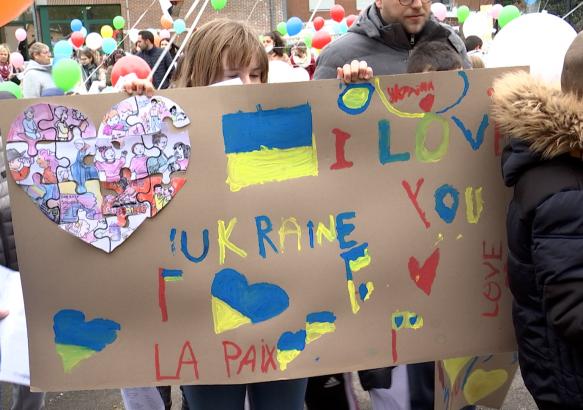 УКРАЇНА
I LOVE
YOU
UKRAINE
LOVE
LA PAIX